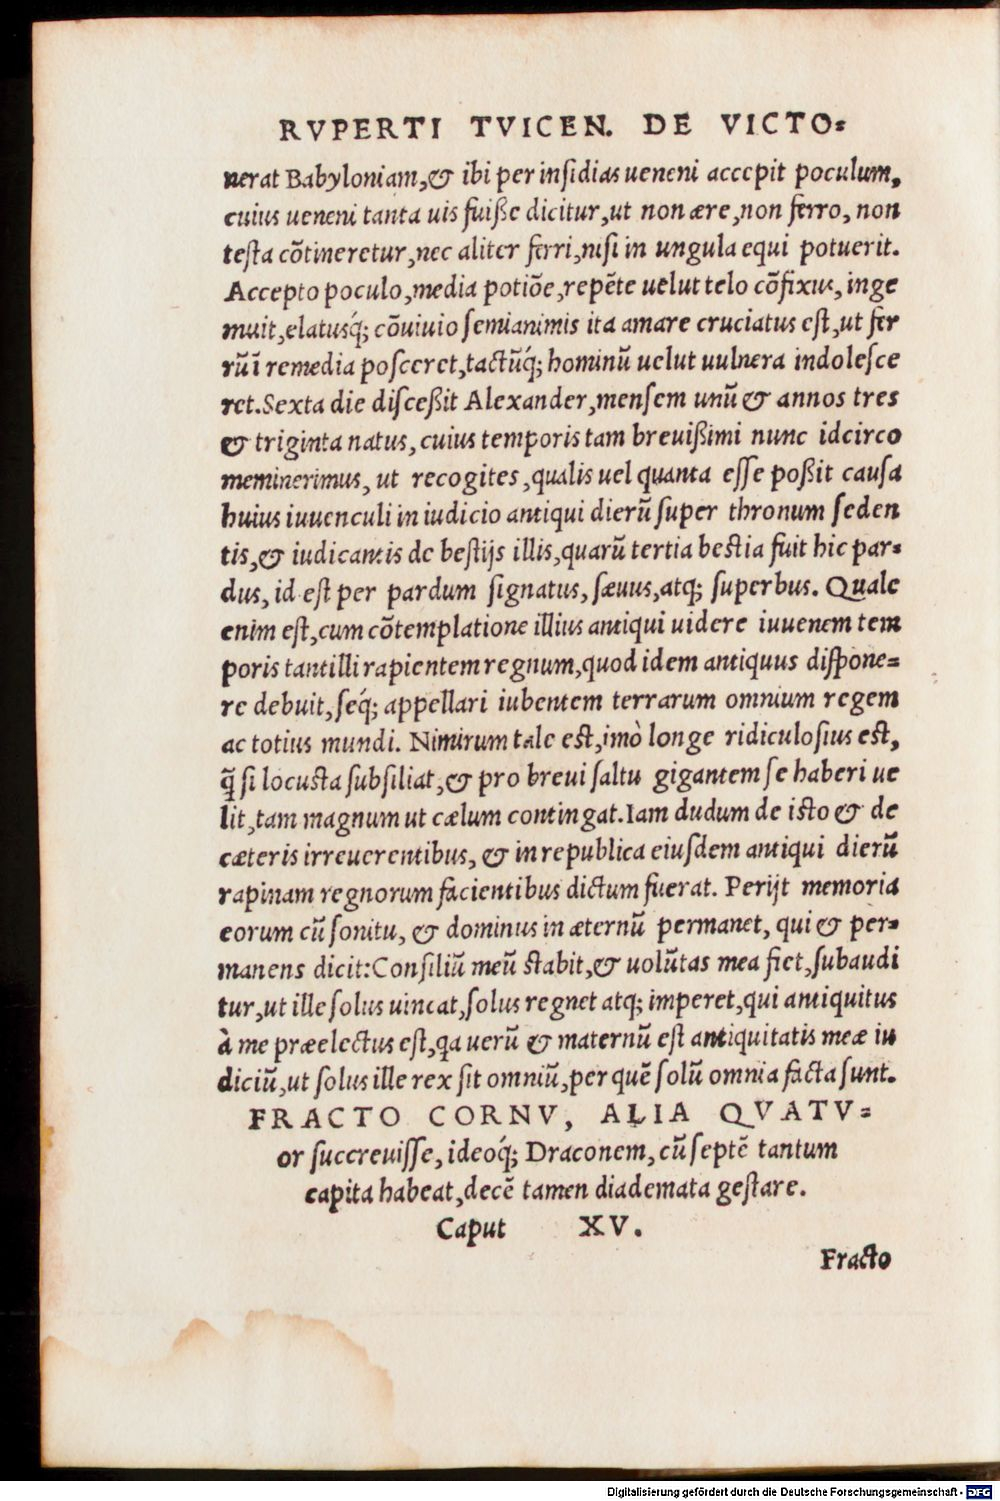 RVPERTI TVICEN. DE VICTO⸗
nerat Babyloniam,& ibi per insidias ueneni accepit poculum,
cuius ueneni tanta uis fuiße dicitur,ut non ære,non ferro, non
testa cõtineretur,nec aliter ferri,nisi in ungula equi potuerit.
Accepto poculo,media potiõe,repẽte uelut telo cõfixus, inge
muit,elatusq́; cõuiuio semianimis ita amare cruciatus est,ut fer
rũĩ remedia posceret,tactũq́; hominũ uelut uulnera indolesce
ret.Sexta die disceßit Alexander,mensem unũ & annos tres
& triginta natus, cuius temporis tam breuißimi nunc idcirco
meminerimus, ut recogites ,qualis uel quanta esse poßit causa
huius iuuenculi in iudicio antiqui dierũ super thronum seden
tis,& iudicantis de bestijs illis,quarũ tertia bestia fuit hic par⸗
dus, id est per pardum signatus, sæuus,atq; superbus. Quale
enim est,cum cõtemplatione illius antiqui uidere iuuenem tem
poris tantilli rapientem regnum,quod idem antiquus dispone⸗
re debuit, seq́; appellari iubentem terrarum omnium regem
ac totius mundi. Nimirum tale est,imò longe ridiculosius est,
q̃ si locusta subsiliat,& pro breui saltu gigantem se haberi ue
lit,tam magnum ut cælum contingat.Iam dudum de isto & de
cæteris irreuerentibus, & in republica eiusdem antiqui dierũ
rapinam regnorum facientibus dictum fuerat. Perijt memoria
eorum cũ sonitu, & dominus in æternũ permanet, qui & per⸗
manens dicit:Consiliũ meũ stabit,& uolũtas mea fiet,subaudi
tur,ut ille solus uincat,solus regnet atq; imperet,qui antiquitus
à me præelectus est,qa uerũ & maternũ est antiquitatis meæ iu
diciũ,ut solus ille rex sit omniũ,per quẽ solũ omnia facta sunt.
FRACTO CORNV, ALIA QVATV⸗
or succreuisse, ideoq́; Draconem, cũ septẽ tantum
capita habeat,decẽ tamen diademata gestare.
Caput XV.
Fracto
Digitalisierung gefördert durch die Deutsche Forschungsgemeinschaft - DFG